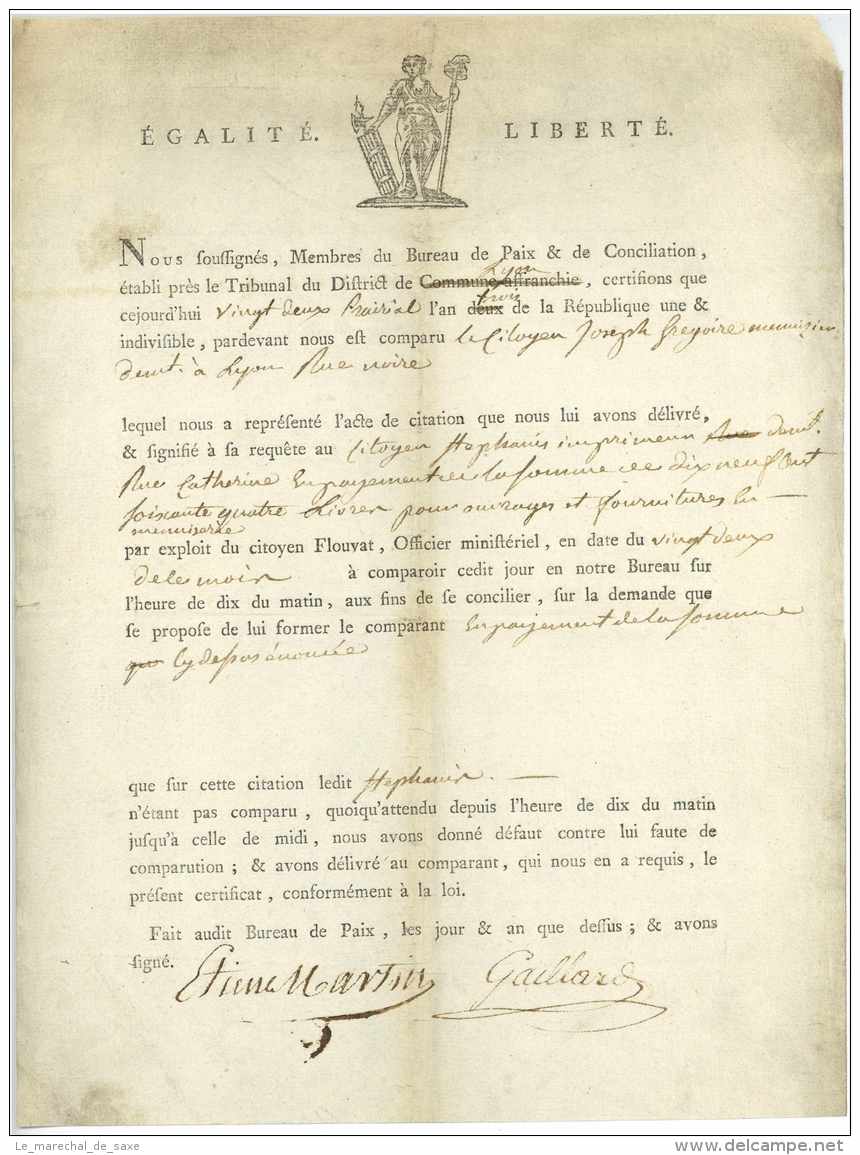 ÉGALITÉ. LIBERTÉ.
Nous souſſignés, Membres du Bureau de Paix & de Conciliation,
Lyon
établi près le Tribunal du Diſtrict de Commune-affranchie, certifions que
trois
cejourd'hui vingt deux Prairial l'an deux de la République une &
indiviſible, pardevant nous eſt comparu le Citoyen Joseph Gregoire menuisier
demt. à Lyon Rue noire
lequel nous a repréſenté l'acte de citation que nous lui avons délivré,
& ſignifié à ſa requête au Citoyen Hephanis imprimeur Rue demt.
Rue Catherine En payement de la somme de dix neuf Cent
soixante quatre Livres pour ouvrages et fournitures En
menuiserie
par exploit du citoyen Flouvat, Officier miniſtériel, en date du vingt deux
de le mois à comparoir cedit jour en notre Bureau ſur
l'heure de dix du matin, aux fins de ſe concilier, ſur la demande que
ſe propoſe de lui former le comparant En payement de la somme
Cy dessus énoncée
que ſur cette citation ledit Hephanis
n'étant pas comparu, quoiqu'attendu depuis l'heure de dix du matin
juſqu'à celle de midi, nous avons donné défaut contre lui faute de
comparution; & avons délivré au comparant, qui nous en a requis, le
préſent certificat, conformément à la loi.
Fait audit Bureau de Paix, les jour & an que deſſus; & avons
ſigné.
Etiene Martin Gailliard
Le_marechal_de_saxe
www.delcampe.net